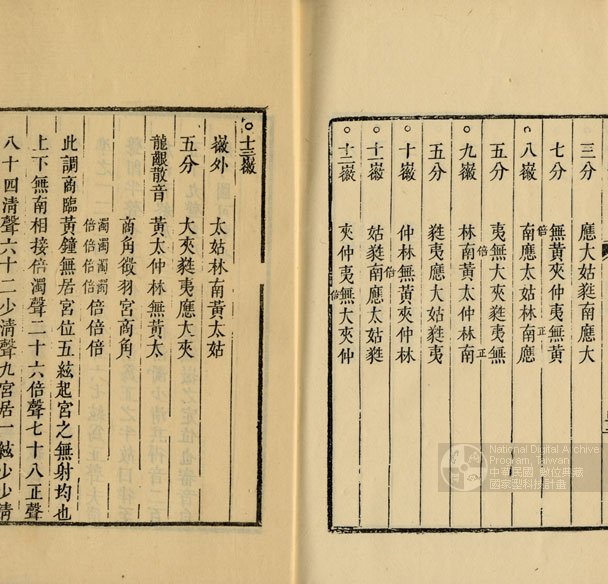 三分 應大姑蕤南應大
七分 無黃夾仲夷無黃
倍 正
八徽 南應太姑林南應
五分 夷無大夾蕤夷無
倍 正
九徽 林南黃太仲林南
五分 蕤夷應大姑蕤夷
十徽 仲林無黃夾仲林
倍
十一徽 姑蕤南應大姑蕤
十二徽 夾仲夷無大夾仲
倍
十三徽
徽外 太姑林南黃太姑
五分 大夾蕤夷應大夾
龍齦散音 黃太仲林無黃太
商角徵羽宮商角
濁濁濁濁
倍倍倍倍倍倍倍
此調商臨黃鐘無居宮位五絃起宮之無射均也
上下無南相接倍濁聲二十六倍聲七十八正聲
八十四清聲六十二少清聲九宮居一絃少少清
National Digital Archive
Program, Taiwan
中華民國 數位典藏
國家型科技計畫